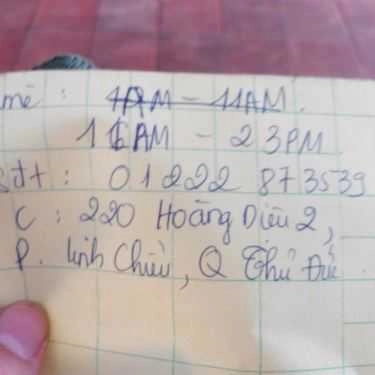 mê : 10AM - 11AM.
1 AM - 23PM
sđt : 01222 873539
C : 220 Hoàng Diệu 2,
P. Linh Chiểu, Q Thủ Đức.